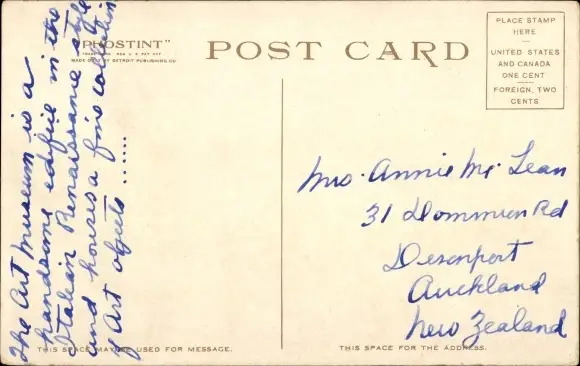 "PHOSTINT"
MADE ONLY BY DETROIT PUBLISHING CO.
POST CARD
PLACE STAMP
HERE
UNITED STATES
AND CANADA
ONE CENT
FOREIGN, TWO
CENTS
The Art Museum is a
handsome edifice in the
Italian Renaissance style
and houses a fine collection
of Art objects......
Mrs. Annie Mc Lean
31 Dominion Rd
Devonport
Auckland
New Zealand
THIS SPACE MAY BE USED FOR MESSAGE.
THIS SPACE FOR THE ADDRESS.